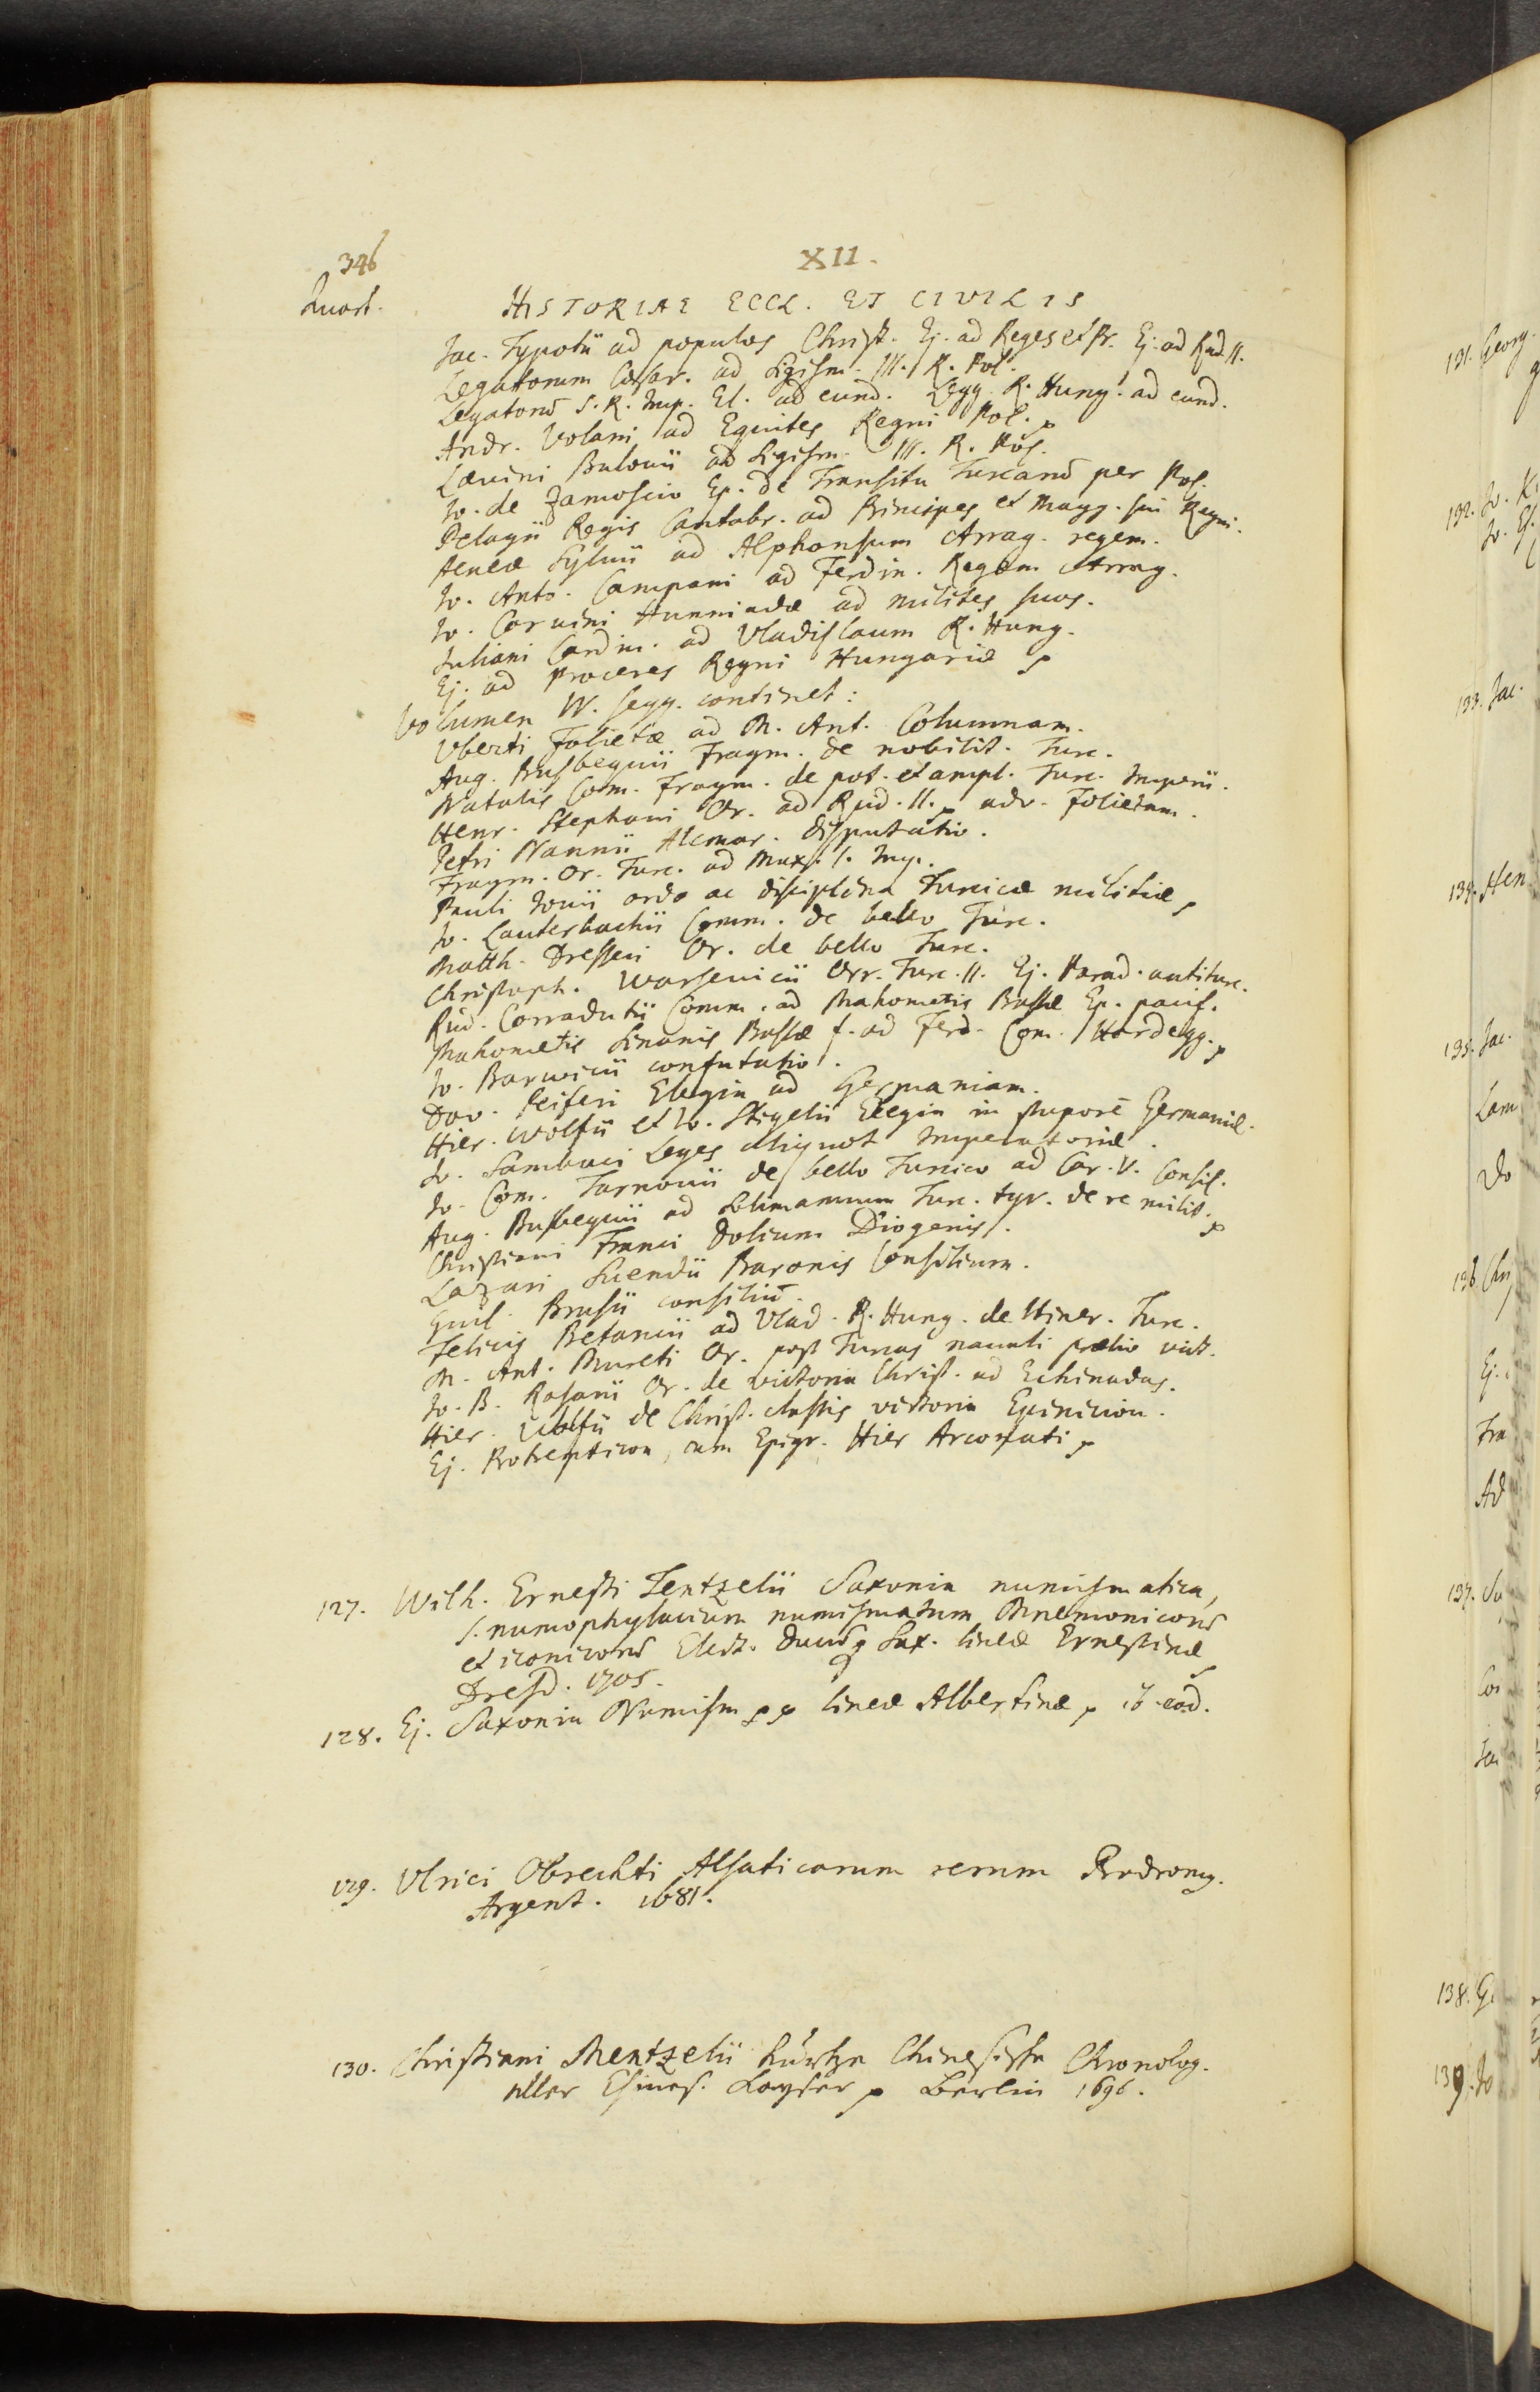 346
XII.
Quart.
HISTORIAE ECCL. ET CIVILIS
Jac. Typotii ad populos Christ. Ej. ad Reges et Pr. Ej. ad Rud. II.
Legatorum Cæsar. ad Sigism. III. R. Pol.
Legatorū S. R. Imp. El. ad eund. Legg. R. Hung. ad eund.
Andr. Volani ad Equites Regni Pol. p
Lævini Bulowii ad Sigism. III. R. Pol.
Jo. de Zamoscio Ep. de Transitu Turcarū per Pol.
Pelagii Regis Cantabr. ad Principes et Magg. sui Regni.
Aeneæ Sylvii ad Alphonsum Arrag. regem.
Jo. Anto. Campani ad Ferdin. Regem Arrag.
Jo. Corvini Hunniadæ ad milites suos.
Juliani Cardin. ad Vladislaum R. Hung.
Ej. ad proceres Regni Hungariæ p
Volumen IV. segg. continet:
Vberti Folietæ ad M. Ant. Columnam.
Aug. Busbequii Fragm. de nobilit. Turc.
Natalis Com. Fragm. de pot. et ampl. Turc. Imperii.
Henr. Stephani Or. ad Rud. II. p adv. Folietam.
Petri Nannii Alcmar. disputatio.
Fragm. Or. Turc. ad Max. I. Imp.
Pauli Jovii ordo ac disciplina Turcicæ militiæ p
Jo. Lauterbachii Comm. de bello Turc.
Matth. Dresseri Or. de bello Turc.
Christoph. Warsevicii Orr. Turc. II. Ej. Parad. antiturc.
Rud. Corradutii Comm. ad Mahometis Bassæ Ep. pacif.
Mahometis Sinanis Bassæ f. ad Ferd. Com. Hardegg. p
Jo. Barwicii confutatio.
Dav. Peiferi Elegia ad Germaniam.
Hier. Wolfii et Jo. Stigelii Elegia in stuporē Germaniæ.
Jo. Sambuci Leges aliquot Imperatoriæ.
Jo. Com. Tarnovii de bello Turcico ad Car. V. Consil.
Aug. Busbequii ad Solimannum Turc. tyr. de re milit. p
Christiani Franci Dolium Diogenis.
Lazari Suendii Baronis Consilium.
Guil. Brusii consiliū.
Felicis Petancii ad Vlad. R. Hung. de Itiner. Turc.
M. Ant. Mureti Or. post Turcas navali prælio vict.
Jo. B. Rosarii Or. de victoria Christ. ad Echinadas.
Hier. Wolfii de Christ. classis victoria Epinicion.
Ej. Protrepticon, cum Epigr. Hier Arconati p
127. Wilh. Ernesti Tentzelii Saxonia numismatica,
s. numophylacium numismatum Mnemonicorū
et iconicorū Elect. Ducūq Sax. lineæ Ernestinæ
Dresd. 1705.
128. Ej. Saxonia Numism p p lineæ Albertinæ p ib. eod.
129. Vlrici Obrechti Alsaticarum rerum Prodromq.
Argent. 1681.
130. Christiani Mentzelii kurtze Chinesische Chronolog.
aller Chines. Kayser p Berlin 1696.
131. Georg.
132. Jo.
133. Jac.
134. Hen
135. Jac.
Lam
Do
136. Chri
Ej.
Fra
Ad
137. Sa
Jac
138. G
139. Jo